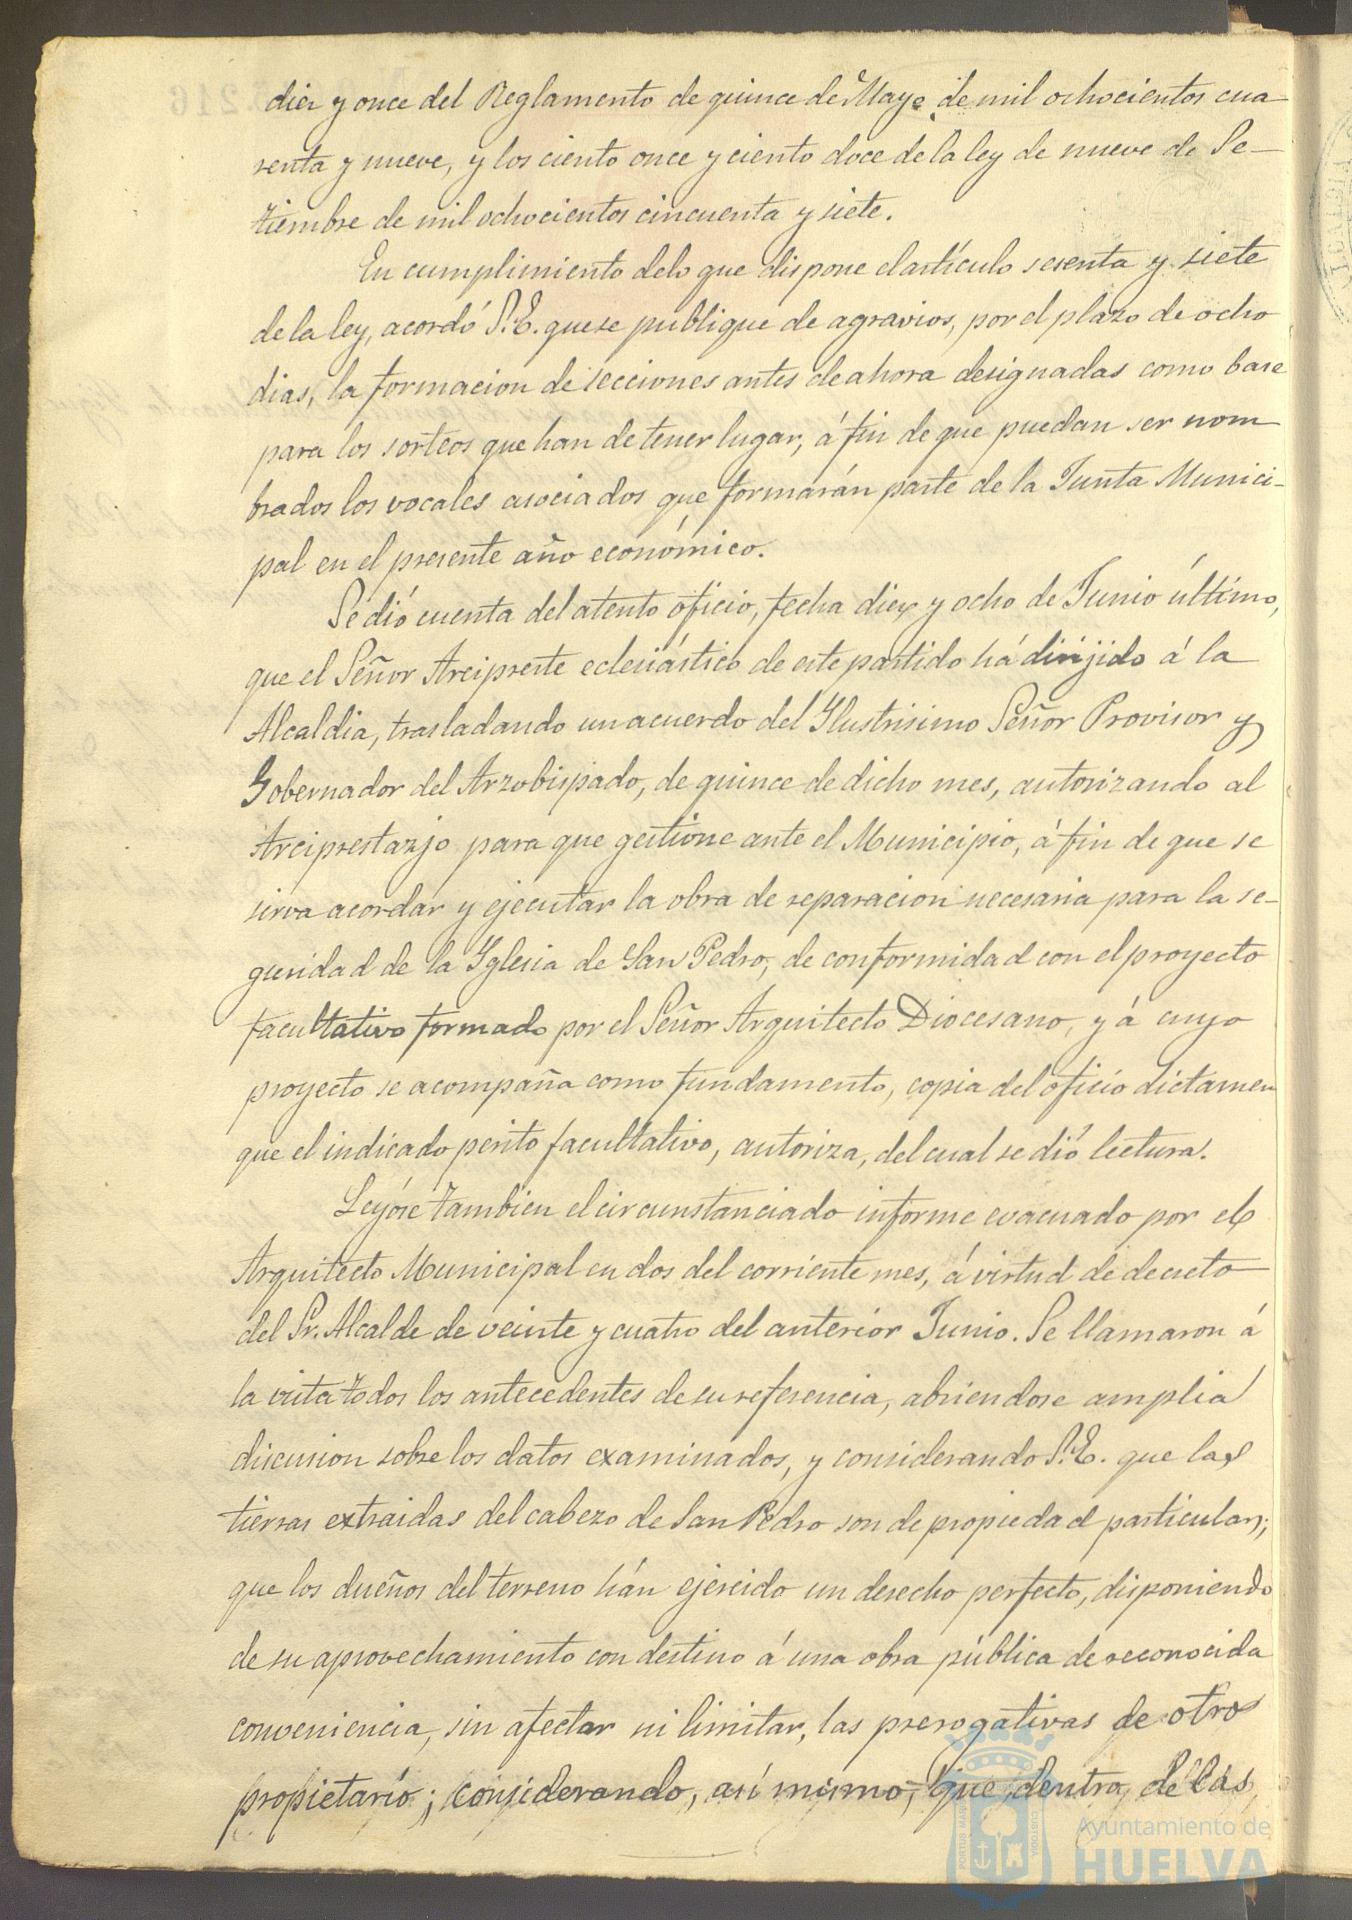 diez y once del Reglamento de quince de Mayo de mil ochocientos cua
renta y nueve, y los ciento once y ciento doce de la ley de nueve de Se-
tiembre de mil ochocientos cincuenta y siete.
En cumplimiento de lo que dispone el artículo sesenta y siete
de la ley, acordó S.E. que se publique de agravios, por el plazo de ocho
dias, la formacion de secciones antes de ahora designadas como base
para los sorteos que han de tener lugar, á fin de que puedan ser nom
brados los vocales asociados que formarán parte de la Junta Munici-
pal en el presente año económico.
Se dió cuenta del atento oficio, fecha diez y ocho de Junio último,
que el Señor Arcipreste eclesiástico de este partido há dirijido á la
Alcaldia, trasladando un acuerdo del Ilustrisimo Señor Provisor y
Gobernador del Arzobispado, de quince de dicho mes, autorizando al
Arciprestazjo para que gestione ante el Municipio, á fin de que se
sirva acordar y ejecutar la obra de reparacion necesaria para la se-
guridad de la Iglesia de San Pedro, de conformidad con el proyecto
facultativo formado por el Señor Arquitecto Diocesano, y á cuyo
proyecto se acompaña como fundamento, copia del oficio dictamen
que el indicado perito facultativo, autoriza, del cual se dió lectura.
Leyóse tambien el circunstanciado informe evacuado por el
Arquitecto Municipal en dos del corriente mes, á virtud de decreto
del Sr. Alcalde de veinte y cuatro del anterior Junio. Se llamaron á
la vista todos los antecedentes de su referencia, abriendose amplia
discusion sobre los datos examinados, y considerando S.E. que las
tierras extraidas del cabezo de San Pedro son de propiedad particular;
que los dueños del terreno hán ejercido un derecho perfecto, disponiendo
de su aprovechamiento con destino á una obra pública de reconocida
conveniencia, sin afectar ni limitar, las prerogativas de otros
propietario; considerando, así mismo, que dentro de las
Ayuntamiento de
HUELVA